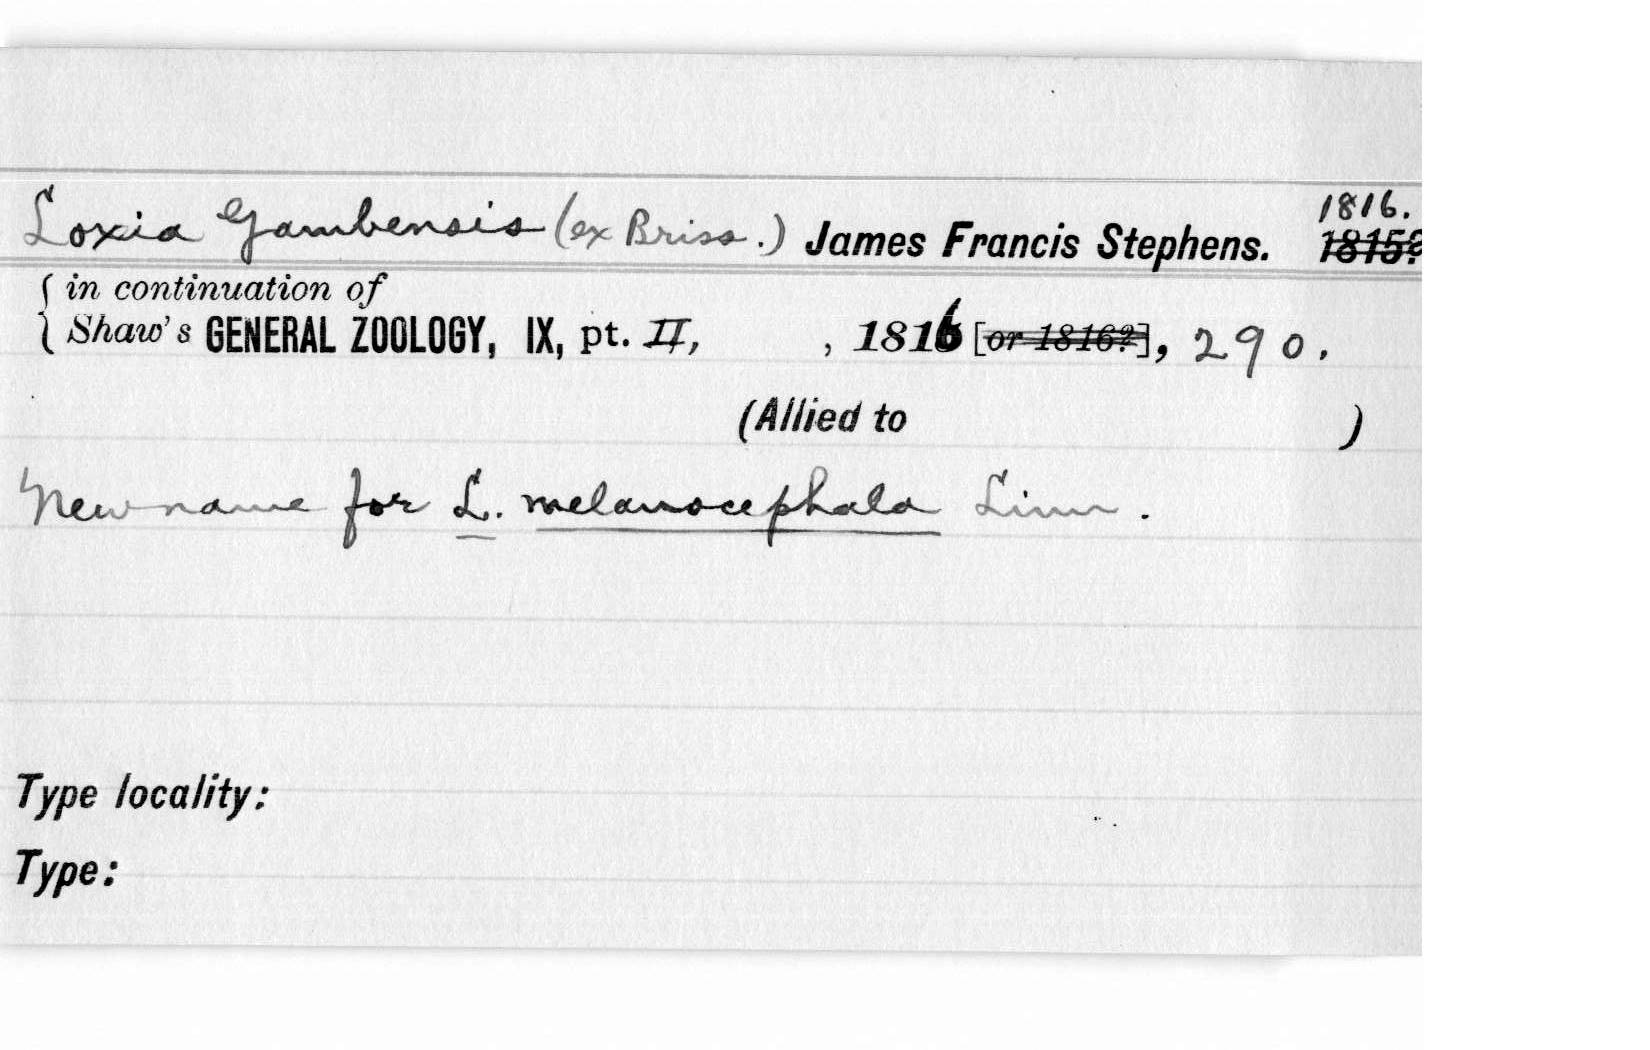 Loxia Gambensis (ex Briss.) James Francis Stephens. 1816.
1815?
in continuation of
Shaw's GENERAL ZOOLOGY, IX, pt. II, , 1816 [or 1816?], 290.
(Allied to )
New name for L. melanocephala Linn.
Type locality:
Type: